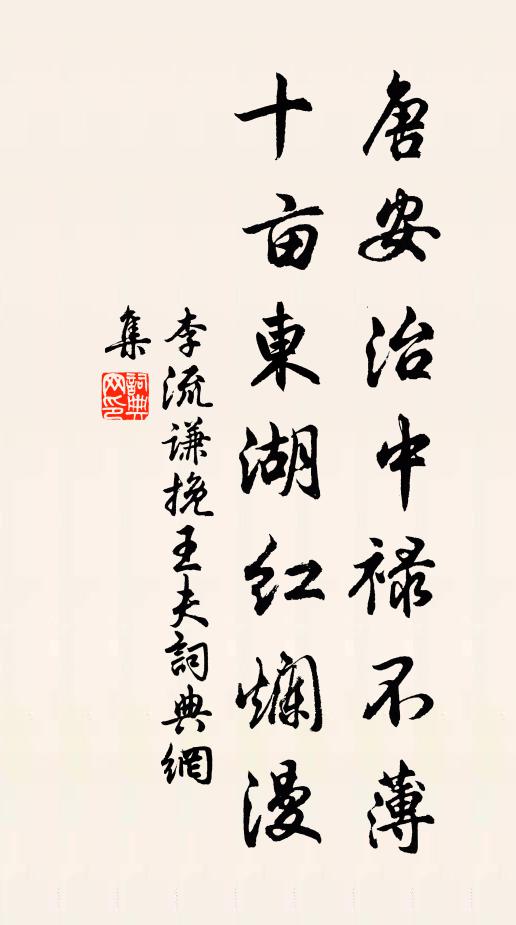 唐安治中禄不薄
十亩東湖紅爛漫
李流谦挽王夫詞典網
集
詞典网印